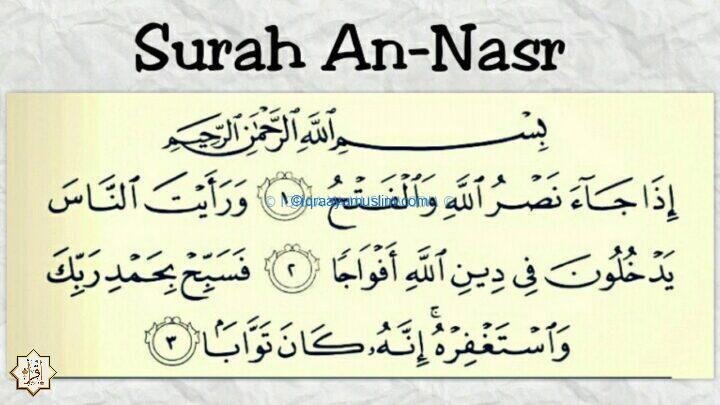 Surah An-Nasr
بِسْمِ اللَّهِ الرَّحْمَٰنِ الرَّحِيمِ
إِذَا جَآءَ نَصْرُ اللَّهِ وَالْفَتْحُ ١ وَرَأَيْتَ النَّاسَ
يَدْخُلُونَ فِي دِينِ اللَّهِ أَفْوَاجًا ٢ فَسَبِّحْ بِحَمْدِ رَبِّكَ
وَاسْتَغْفِرْهُ ۚ إِنَّهُ كَانَ تَوَّابًا ٣